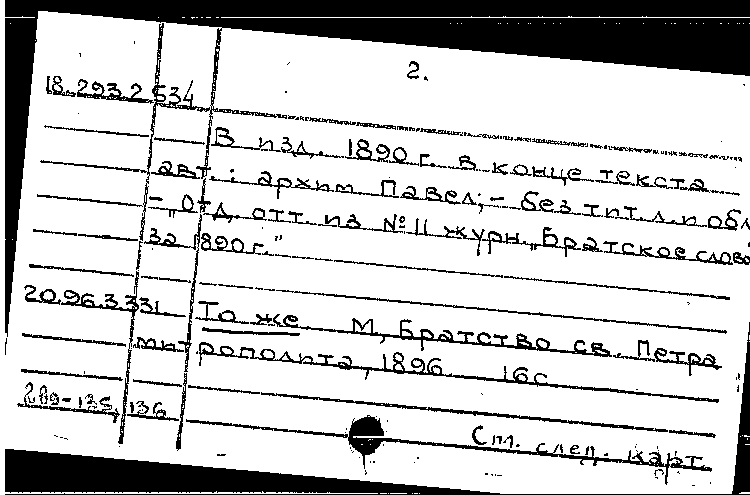 2.
18.293.2.534
В изд. 1890 г. в конце текста
авт.: архим Павел; – без тит. л. и обл
– „Отд. отт. из № 11 журн. „Братское слово
за 1890 г."
20.96.3.331. То же М, Братство св. Петра
митрополита, 1896. 16с
136
См. след. карт.